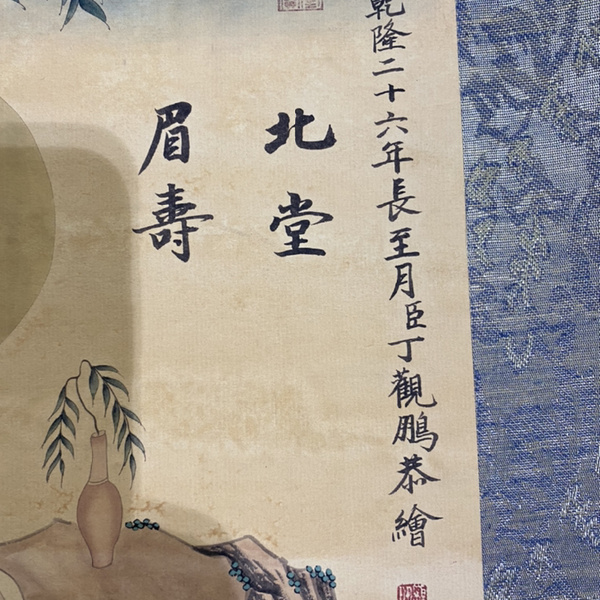 乾隆二十六年長至月臣丁觀鵬恭繪
北堂
眉壽